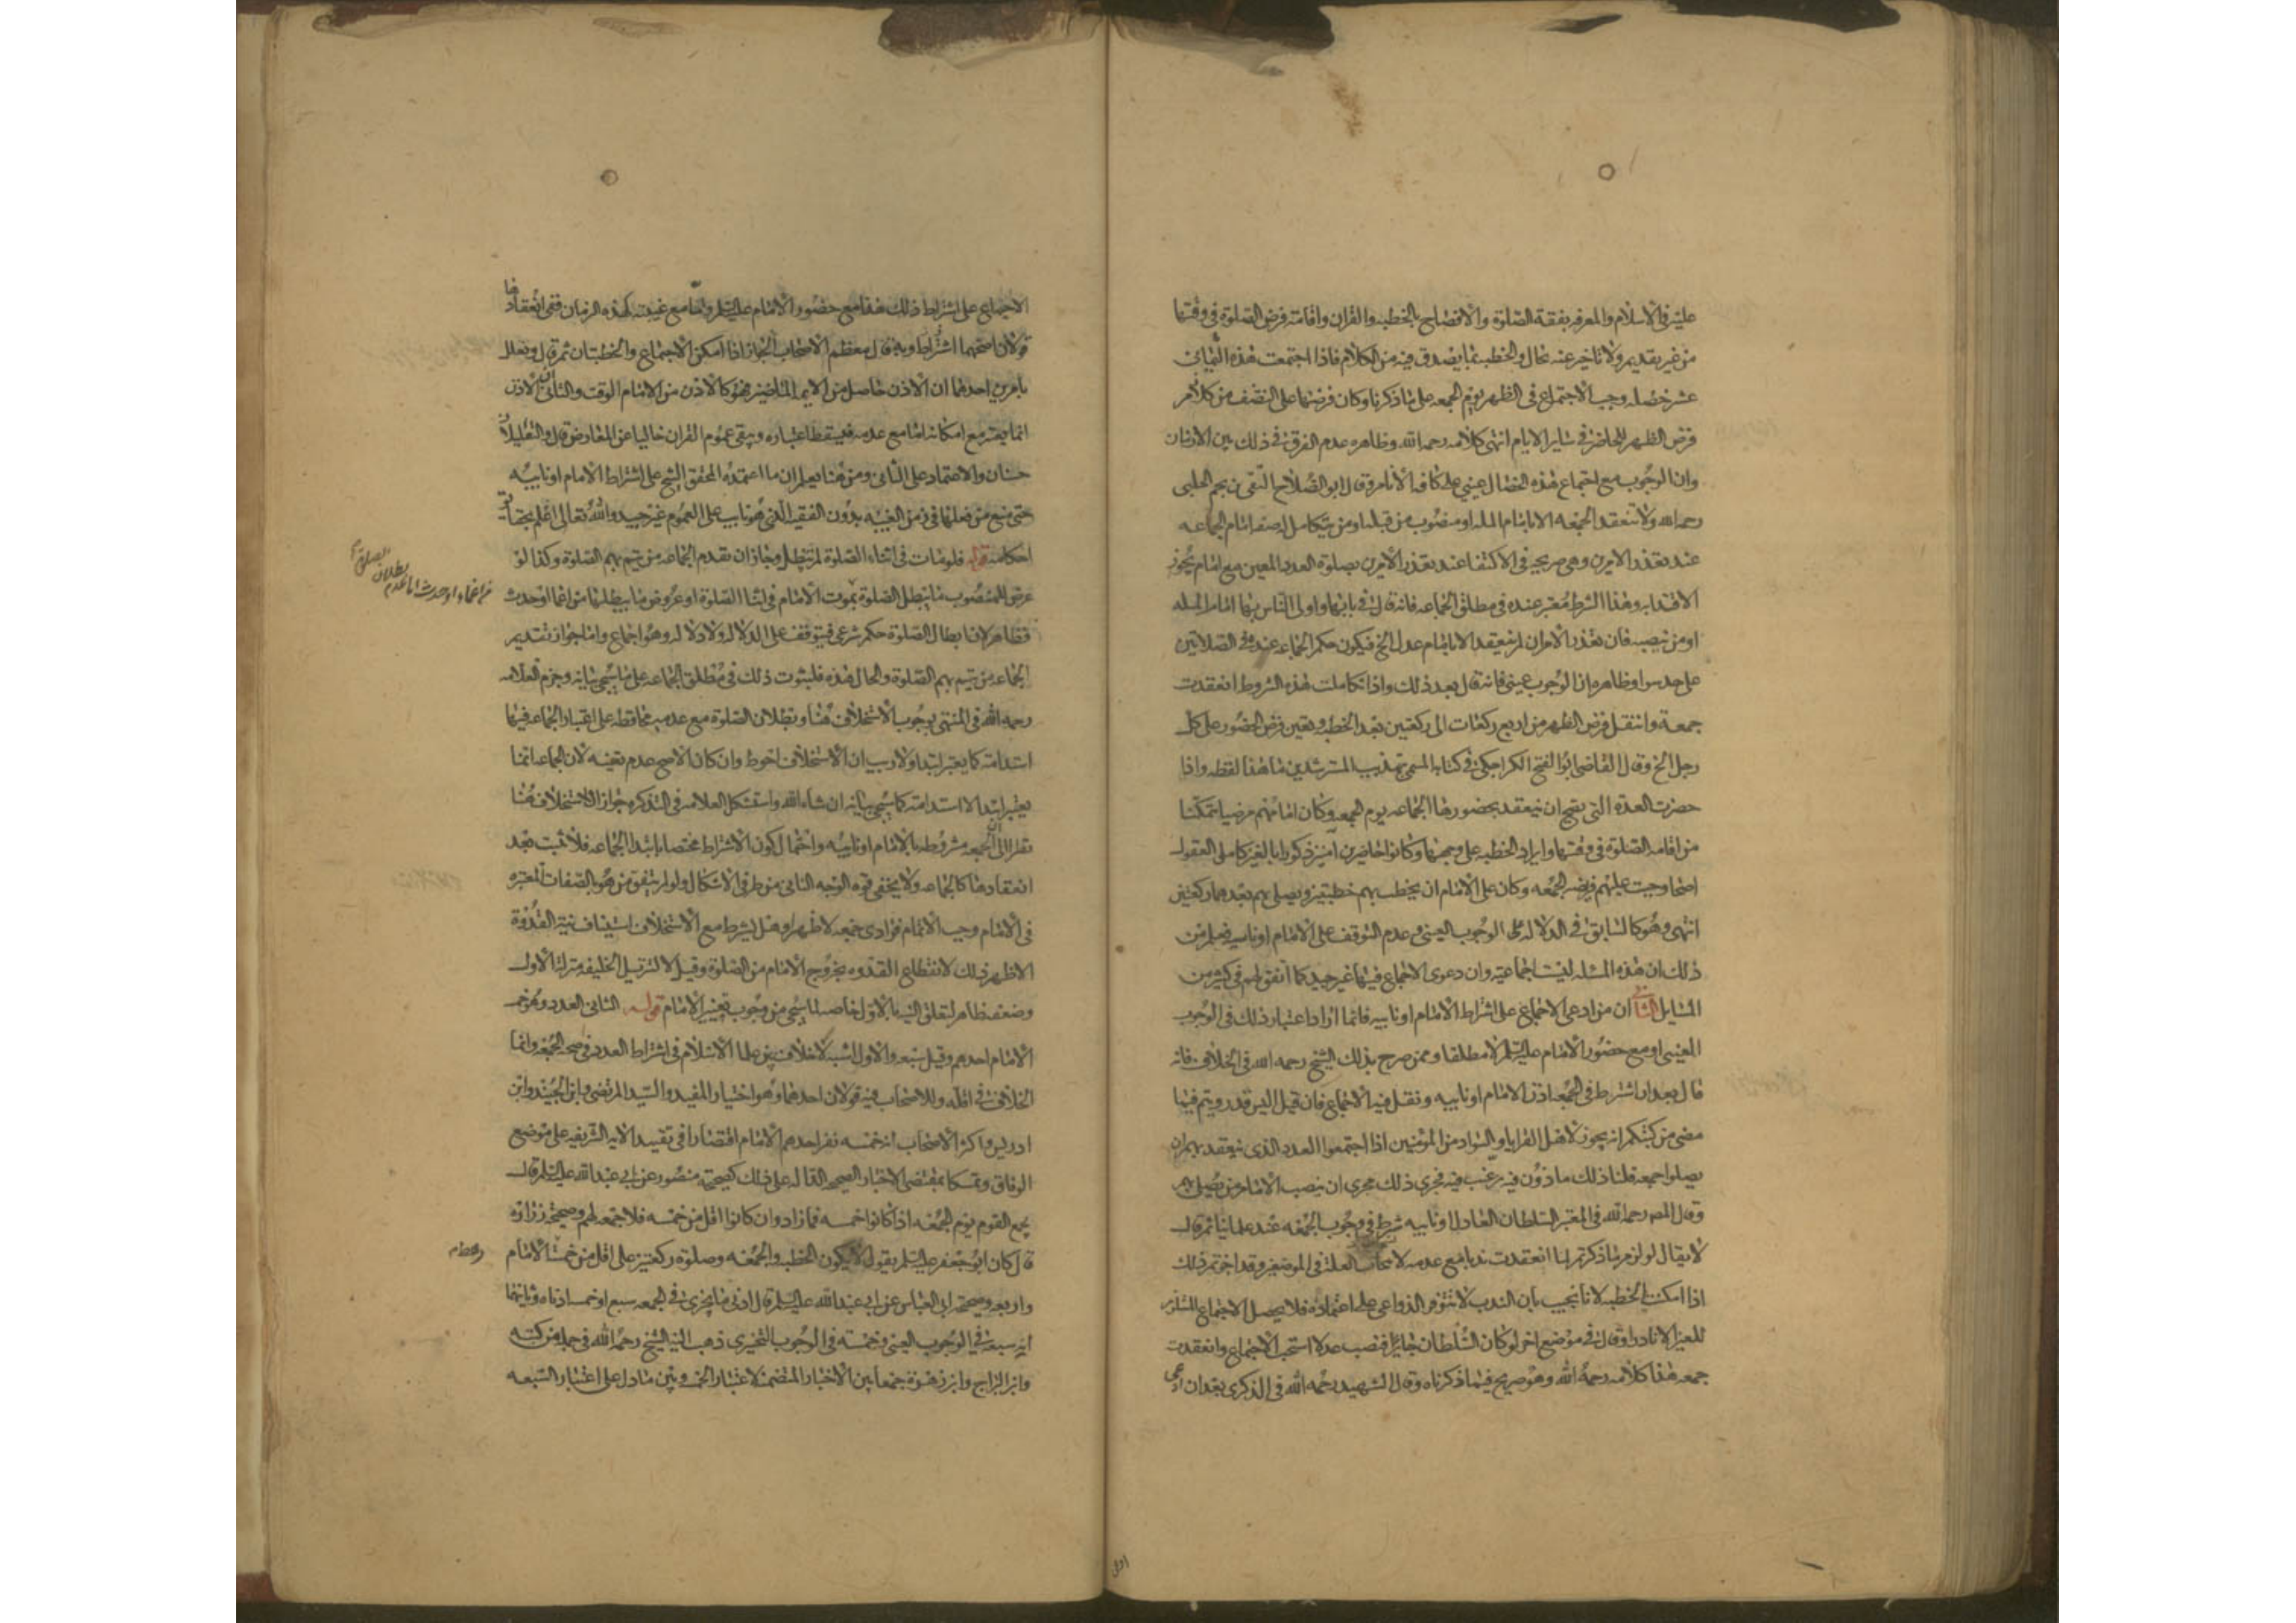 عليه في الاسلام والمعرفه بفقه الصلوة والافصاح بالخطبه والقران واقامته فرض الصلوة في وقتها
من غير تقديم ولا تاخير عنه بحال والخطبه بما يصدق فيه من الكلام فاذا اجتمعت هذه الثماني
عشر خصله وجب الاجتماع في الظهر يوم الجمعه على ما ذكرنا وكان فرضها على النصف من
فرض الظهر للحاضر في ساير الايام انتهى كلامه رحمه الله وظاهره عدم الفرق في ذلك بين الازمان
وان الوجوب مع اجتماع هذه الخصال عيني على كافة الانام وقال ابو الصلاح التقي بن نجم الحلبي
رحمه الله ولا تنعقد الجمعه الا بامام المله او منصوب من قبله او من يتكامل له صفه امام الجماعه
عند تعذر الامرين وهي صريحه في الاكتفا عند تعذر الامرين بصلوة العدد المعين مع امام يجوز
الاقتدا به وهذا الشرط معتبر عنده في مطلق الجماعه فانه قال في بابها واولى الناس بها امام المله
او من نصبه فان تعذر الامران لم تنعقد الا بامام عدل الخ فيكون حكم الجماعه عنده في الصلاتين
على حد سوا وظاهره ان الوجوب عيني فانه قال بعد ذلك واذا تكاملت هذه الشروط انعقدت
جمعة وانتقل فرض الظهر من اربع ركعات الى ركعتين بعد الخطبه وتعين فرض الحضور على كل
رجل الخ وقال القاضي ابو الفتح الكراجكي في كتابه المسمى تهذيب المسترشدين ما هذا لفظه واذا
حضرت العدة التي يصح ان ينعقد بحضورها الجماعه يوم الجمعه وكان امامهم مرضيا متمكنا
من اقامه الصلوة في وقتها وايراد الخطبه على وجهها وكانوا حاضرين امنين ذكورا بالغين كاملي العقول
اصحا وجبت عليهم فريضه الجمعه وكان على الامام ان يخطب بهم خطبتين ويصلي بهم بعدهما ركعتين
انتهى وهو كالسابق في الدلاله على الوجوب العيني وعدم التوقف على الامام او نايبه فعلم من
ذلك ان هذه المسئله ليست اجماعيه وان دعوى الاجماع فيها غير جيد كما اتفق لهم في كثير من
المسايل الثاني ان من ادعى الاجماع على اشتراط الامام او نايبه فانما اراد اعتبار ذلك في الوجوب
العيني او مع حضور الامام عليه السلم لا مطلقا وممن صرح بذلك الشيخ رحمه الله في الخلاف فانه
قال بعد ان اشترط في الجمعه اذن الامام او نايبه ونقل فيه الاجماع فان قيل اليس قد رويتم فيما
مضى من كتبكم انه يجوز لاهل القرايا والسواد من المؤمنين اذا اجتمعوا العدد الذي ينعقد بهم ان
يصلوا جمعه قلنا ذلك ماذون فيه مرغب فيه فجرى ذلك مجرى ان ينصب الامام من يصلي بهم
وقال المص رحمه الله في المعتبر السلطان العادل او نايبه شرط في وجوب الجمعه عند علمائنا ثم قال
لا يقال لو لزم ما ذكرتم لما انعقدت ندبا مع عدمه لانسحاب العلة في الموضعين وقد اجزتم ذلك
اذا امكنت الخطبه لانا نجيب بان الندب لا تتوفر الدواعي على اعتماده فلا يحصل الاجتماع المستلزم
للفتن الا نادرا وقال في موضع اخر لو كان السلطان جائرا فنصب عدلا استحب الاجتماع وانعقدت
جمعه هذا كلامه رحمه الله وهو صريح فيما ذكرناه وقال الشهيد رحمه الله في الذكرى بعد ان ادعى
الاجماع على اشتراط ذلك هذا مع حضور الامام عليه السلم واما مع غيبته كهذه الزمان ففي انعقادها
قولان اصحهما وبه قال معظم الاصحاب الجواز اذا امكن الاجتماع والخطبتان ثم قال ويعلل
بامرين احدهما ان الاذن حاصل من الايمه الماضين فهو كالاذن من الامام الوقت والثاني ان الاذن
انما يعتبر مع امكانه اما مع عدمه فيسقط اعتباره ويبقى عموم القران خاليا عن المعارض قال والتعليلان
حسنان والاعتماد على الثاني ومن هنا يعلم ان ما اعتمده المحقق الشيخ على اشتراط الامام او نايبه
حتى منع من فعلها في زمن الغيبه بدون الفقيه الذي هو نايب على العموم غير جيد والله تعالى اعلم بحقايق
احكامه قوله فلو مات في اثناء الصلوة لم تبطل وجاز ان تقدم الجماعه من يتم بهم الصلوة وكذا لو
عرض للمنصوب ما يبطل الصلوة بموت الامام في اثنا الصلوة او عروض ما يبطلها من اغما او حدث
فظاهر لان ابطال الصلوة حكم شرعي فيتوقف على الدلاله ولا دلاله وهو اجماع واما جواز تقديم
الجماعه من يتم بهم الصلوة والحال هذه فلثبوت ذلك في مطلق الجماعه على ما سيجي بيانه وجزم العلامه
رحمه الله في المنتهى بوجوب الاستخلاف هنا وبطلان الصلوة مع عدمه محافظه على اعتبار الجماعه فيها
استدامة كما يعتبر ابتدا ولا ريب ان الاستخلاف احوط وان كان الاصح عدم تعينه لان الجماعه انما
يعتبر ابتدا لا استدامته كما سيجي بيانه ان شاء الله واستشكل العلامه في التذكره جواز الاستخلاف هنا
نظرا الى ان الجمعه مشروطه بالامام او نايبه واحتمال كون الاشتراط مختصا بابتدا الجماعه فلا تثبت بعد
انعقادها كالجماعه ولا يخفى قوه الوجه الثاني من طرفي الاشكال ولو لم يتفق من هو بالصفات المعتبره
في الامام وجب الاتمام فرادى جمعه لا ظهرا وهل يشترط مع الاستخلاف استيناف نية القدوة
الاظهر ذلك لانقطاع القدوه بخروج الامام من الصلوة وقيل لا لتنزيل الخليفه منزلة الاول
وضعفه ظاهر لتعلق النيه بالاول خاصه لما سيجي من وجوب تعيين الامام قوله الثاني العدد وهو خمسه
الامام احدهم وقيل سبعه والاول اشبه لا خلاف بين علما الاسلام في اشتراط العدد في صحه الجمعه وانما
الخلاف في اقله وللاصحاب فيه قولان احدهما وهو اختيار المفيد والسيد المرتضى وابن الجنيد وابن
ادريس واكثر الاصحاب انه خمسه نفر احدهم الامام اقتصارا في تقييد الايه الشريفه على موضع
الوفاق وتمسكا بمقتضى الاخبار الصحيحه الداله على ذلك كصحيحة منصور عن ابي عبد الله عليه السلم قال
يجمع القوم يوم الجمعه اذا كانوا خمسه فما زاد وان كانوا اقل من خمسه فلا جمعه لهم وصحيحه زراره
قال كان ابو جعفر عليه السلم يقول لا يكون الخطبه والجمعه وصلوة ركعتين على اقل من خمسة الامام
واربعه وصحيحة ابي العباس عن ابي عبد الله عليه السلم قال ادنى ما يجزي في الجمعه سبع او خمسه ادناه وثانيهما
انه سبعه في الوجوب العيني وخمسه في الوجوب التخييري ذهب اليه الشيخ رحمه الله في جمله من كتبه
وابن البراج وابن زهرة جمعا بين الاخبار المتضمنه لاعتبار الخمسه وبين ما دل على اعتبار السبعه